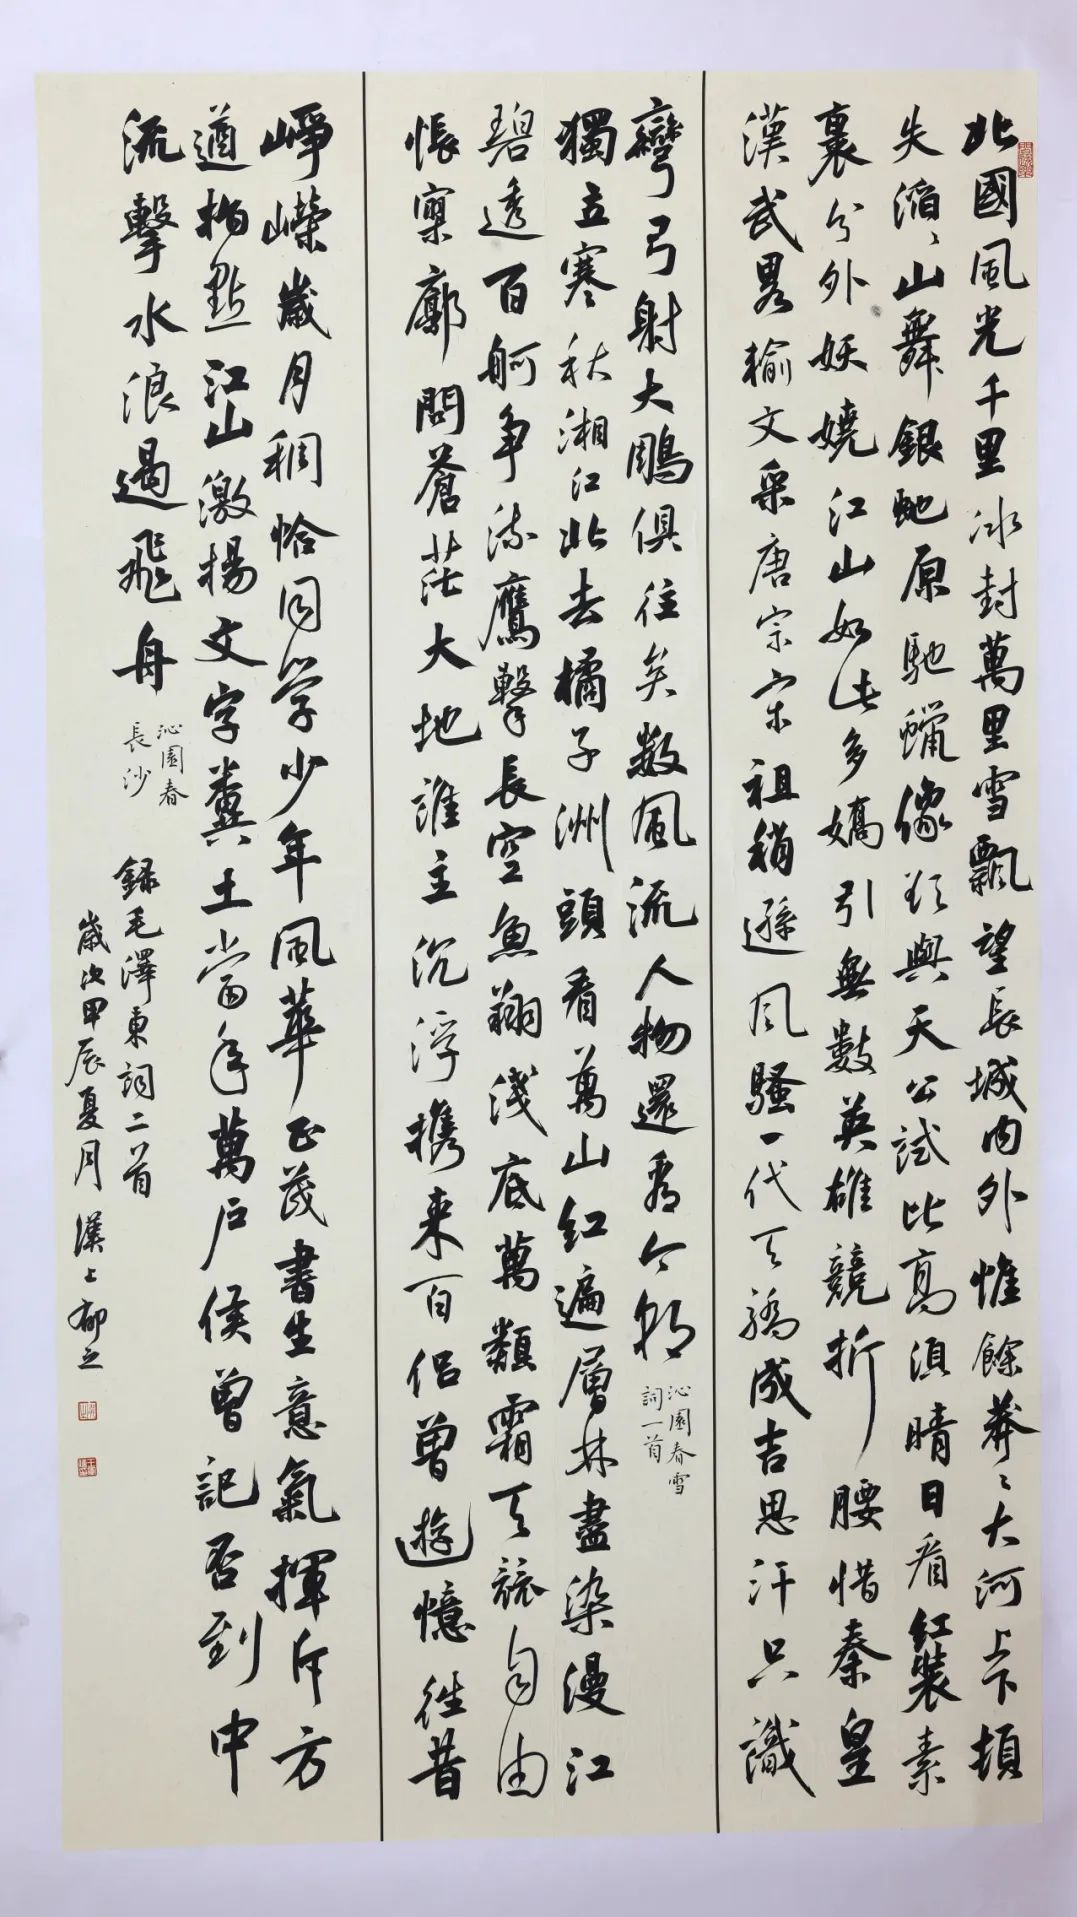 北國風光千里冰封萬里雪飄望長城內外惟餘莽〻大河上下頓
失滔〻山舞銀虵原馳蠟像欲與天公試比高須晴日看紅裝素
裹分外妖嬈江山如此多嬌引無數英雄競折腰惜秦皇
漢武畧輸文采唐宗宋祖稍遜風騷一代天驕成吉思汗只識
彎弓弓射大鵰俱往矣數風流人物還看今朝
沁園春雪
詞一首
獨立寒秋湘江北去橘子洲頭看萬山紅遍層林盡染漫江
碧透百舸爭流鷹擊長空魚翔淺底萬類霜天競自由
悵寥廓問蒼茫大地誰主沉浮攜來百侶曾遊憶往昔
崢嶸歲月稠恰同學少年風華正茂書生意氣揮斥方
遒指點江山激揚文字糞土當年萬戶侯曾記否到中
流擊水浪遏飛舟
沁園春
長沙
錄毛澤東詞二首
歲次甲辰夏月漢上郁之